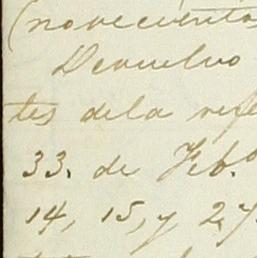 (novecientos
Devuelvo
tes dela refe
33. de Feb.º
14, 15, y 27.